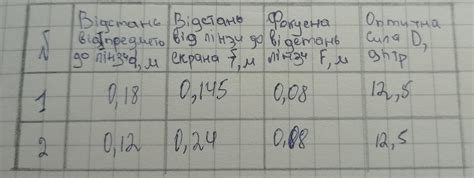 № Відстань від предмета до лінзи d, м Відстань від лінзи до екрана f, м Фокусна відстань лінзи F, м Оптична сила D, дптр
1 0,18 0,145 0,08 12,5
2 0,12 0,24 0,08 12,5